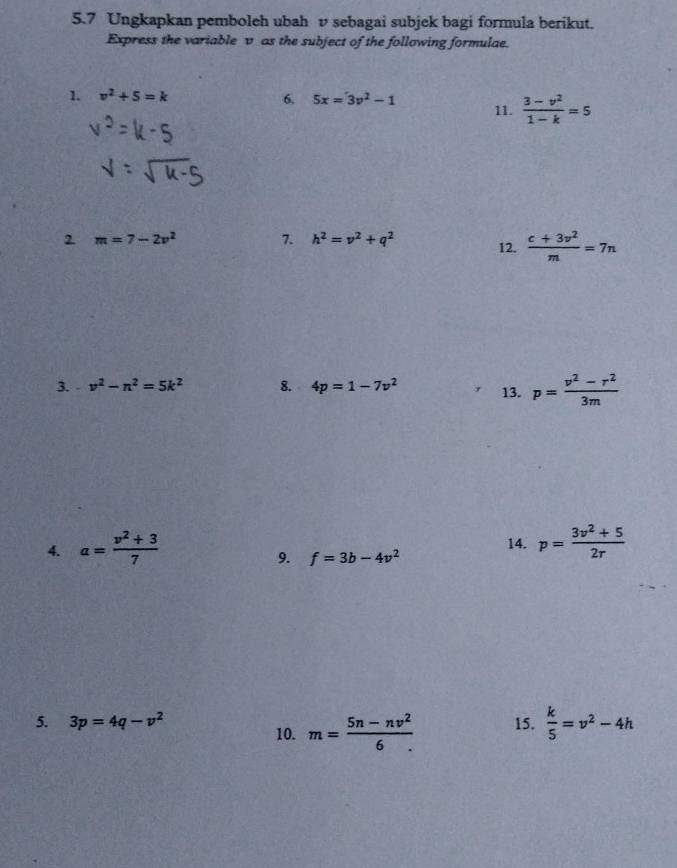 5.7 Ungkapkan pemboleh ubah v sebagai subjek bagi formula berikut.
Express the variable v as the subject of the following formulae.
1. v² + 5 = k
v² = k - 5
v = √k-5
6. 5x = 3v² − 1
11. (3 − v²)/(1 − k) = 5
2. m = 7 − 2v²
7. h² = v² + q²
12. (c + 3v²)/m = 7n
3. v² − n² = 5k²
8. 4p = 1 − 7v²
13. p = (v² − r²)/3m
4. a = (v² + 3)/7
9. f = 3b − 4v²
14. p = (3v² + 5)/2r
5. 3p = 4q − v²
10. m = (5n − nv²)/6
15. k/5 = v² − 4h